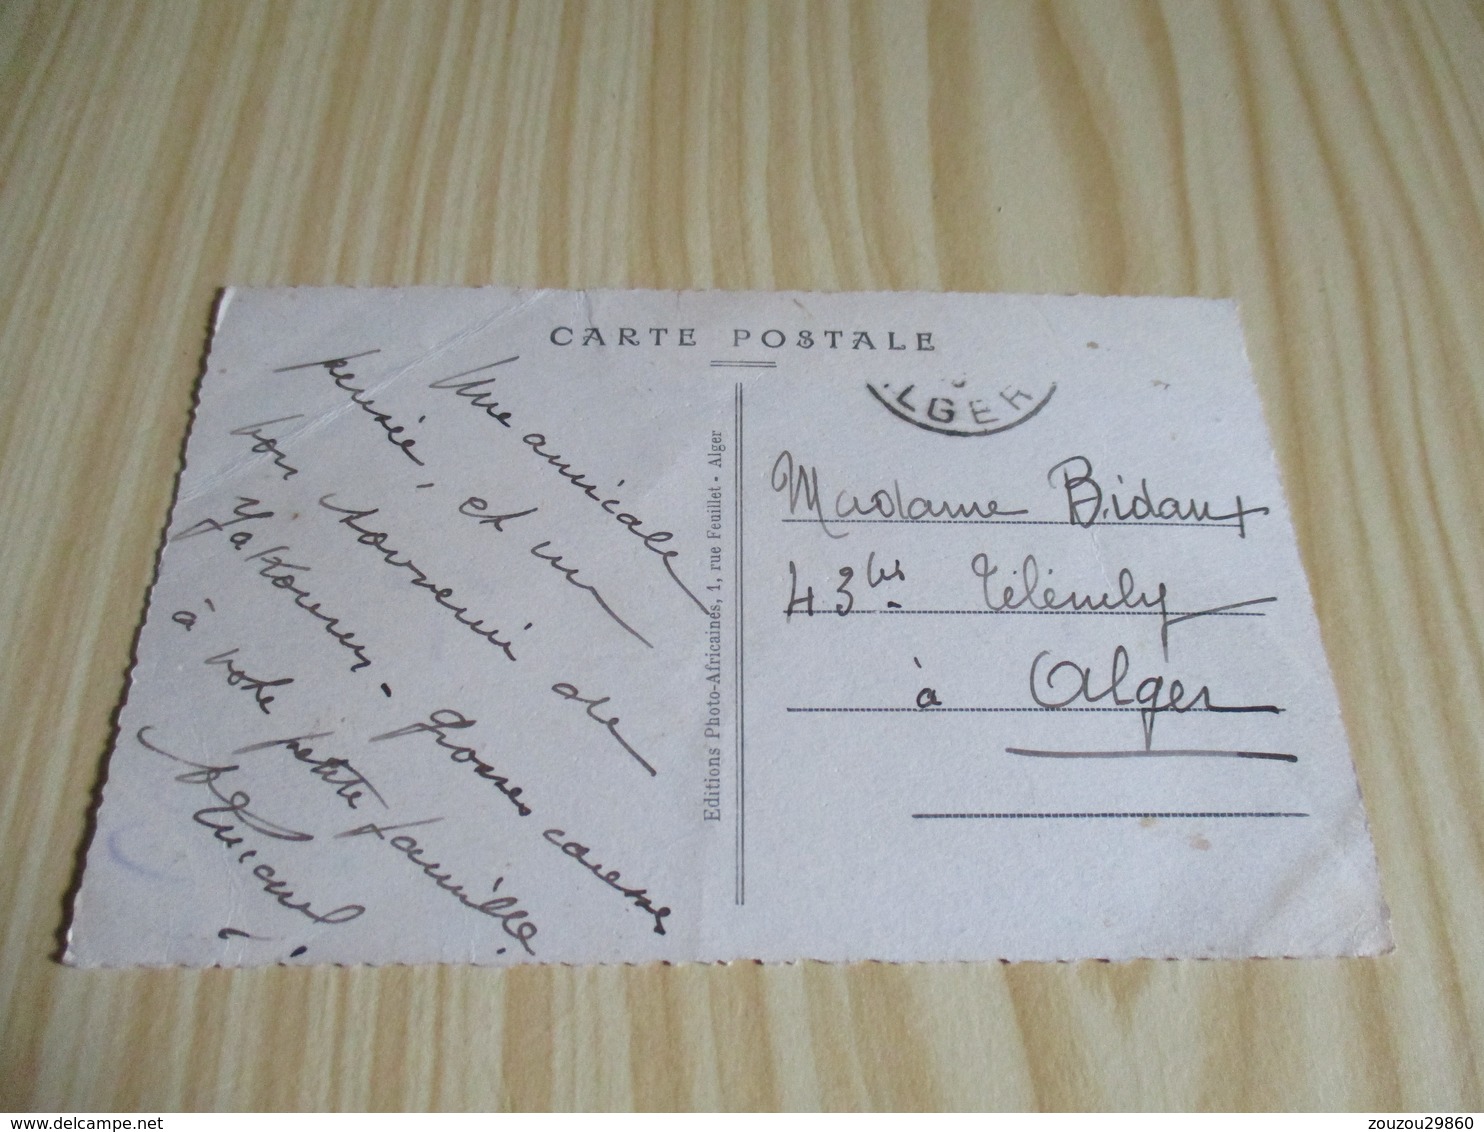 CARTE POSTALE
LGER
Une amicale
pensée, et un
bon souvenir de
Yakouren. Grosses caresses
à votre petite famille.
Editions Photo-Africaines, 1, rue Feuillet - Alger
Madame Bidaux
43 bis Télémly
à Alger
zouzou29860